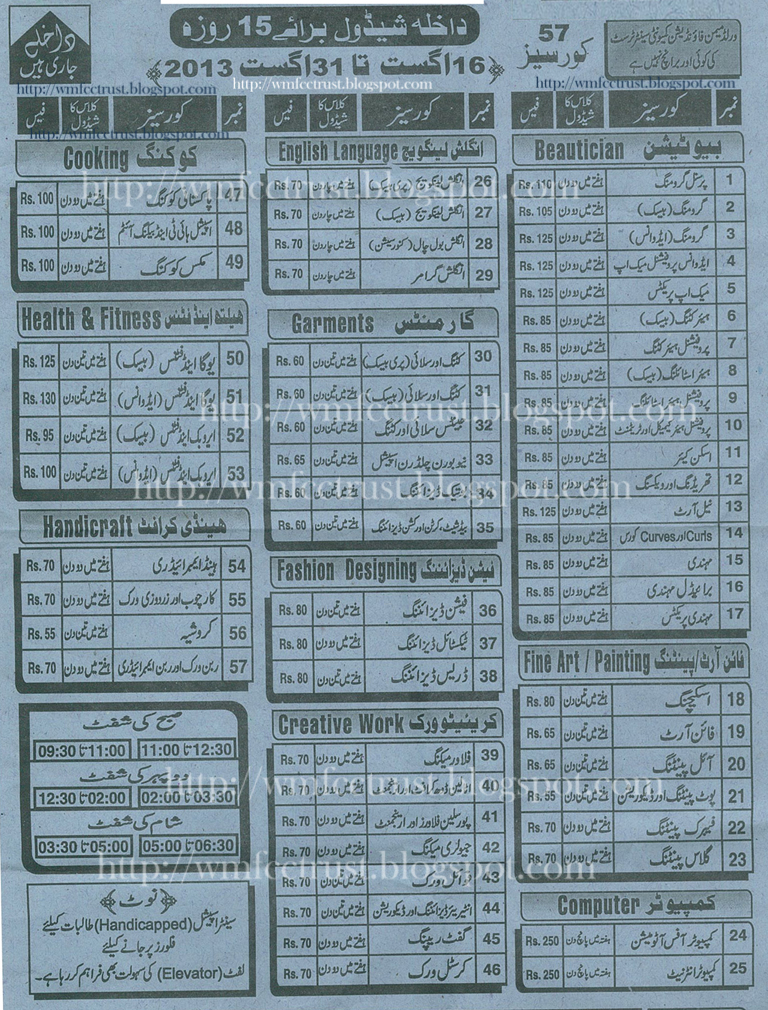 ورلڈ میمن فاؤنڈیشن کمیونٹی سینٹر ٹرسٹ
کی کوئی اور برانچ نہیں ہے
57
کورسیز
داخلہ شیڈول برائے 15 روزہ
16 اگست تا 31 اگست 2013
داخلے
جاری ہیں
http://wmfcctrust.blogspot.com
نمبر کورسیز کلاس کا شیڈول فیس
بیوٹیشن Beautician
1 پرسنل گرومنگ ہفتے میں دو دن Rs. 110
2 گرومنگ (بیسک) ہفتے میں دو دن Rs. 105
3 گرومنگ (ایڈوانس) ہفتے میں دو دن Rs. 125
4 ایڈوانس پروفیشنل میک اپ ہفتے میں دو دن Rs. 125
5 میک اپ پریکٹس ہفتے میں دو دن Rs. 125
6 ہیئر کٹنگ (بیسک) ہفتے میں دو دن Rs. 85
7 پروفیشنل ہیئر کٹنگ ہفتے میں دو دن Rs. 85
8 ہیئر اسٹائلنگ (بیسک) ہفتے میں دو دن Rs. 85
9 پروفیشنل ہیئر اسٹائلنگ ہفتے میں دو دن Rs. 85
10 پروفیشنل ہیئر کیمیکل اور ٹریٹمنٹ ہفتے میں دو دن Rs. 85
11 اسکن کیئر ہفتے میں دو دن Rs. 85
12 تھریڈنگ اور ویکسنگ ہفتے میں دو دن Rs. 85
13 نیل آرٹ ہفتے میں دو دن Rs. 125
14 Curls اور Curves کورس ہفتے میں دو دن Rs. 85
15 مہندی ہفتے میں دو دن Rs. 85
16 برائیڈل مہندی ہفتے میں دو دن Rs. 85
17 مہندی پریکٹس ہفتے میں دو دن Rs. 85
فائن آرٹ/پینٹنگ Fine Art / Painting
18 اسکیچنگ ہفتے میں تین دن Rs. 80
19 فائن آرٹ ہفتے میں تین دن Rs. 65
20 آئل پینٹنگ ہفتے میں تین دن Rs. 65
21 پوٹ پینٹنگ اور ڈیکوریشن ہفتے میں تین دن Rs. 55
22 فیبرک پینٹنگ ہفتے میں دو دن Rs. 70
23 گلاس پینٹنگ ہفتے میں دو دن Rs. 70
کمپیوٹر Computer
24 کمپیوٹر آفس آٹومیشن ہفتہ میں پانچ دن Rs. 250
25 کمپیوٹر انٹرنیٹ ہفتہ میں پانچ دن Rs. 250
نمبر کورسیز کلاس کا شیڈول فیس
انگلش لینگویج English Language
26 انگلش لینگویج (پری بیسک) ہفتے میں چار دن Rs. 70
27 انگلش لینگویج (بیسک) ہفتے میں چار دن Rs. 70
28 انگلش بول چال (کنورسیشن) ہفتے میں چار دن Rs. 70
29 انگلش گرامر ہفتے میں چار دن Rs. 70
گارمنٹس Garments
30 کٹنگ اور سلائی (پری بیسک) ہفتے میں تین دن Rs. 60
31 کٹنگ اور سلائی (بیسک) ہفتے میں تین دن Rs. 60
32 جینٹس سلائی اور کٹنگ ہفتے میں تین دن Rs. 60
33 نیو بورن چلڈرن اسپیشل ہفتے میں تین دن Rs. 65
34 ڈیزائننگ ہفتے میں تین دن Rs. 60
35 بیڈ شیٹ، کرٹن اور کشن ڈیزائننگ ہفتے میں تین دن Rs. 60
فیشن ڈیزائننگ Fashion Designing
36 فیشن ڈیزائننگ ہفتے میں تین دن Rs. 80
37 ٹیکسٹائل ڈیزائننگ ہفتے میں تین دن Rs. 80
38 ڈریس ڈیزائننگ ہفتے میں تین دن Rs. 80
کریئیٹو ورک Creative Work
39 فلاور میکنگ ہفتے میں دو دن Rs. 70
40 ہفتے میں دو دن Rs. 70
41 پورسلین فلاورز اور ارینجمنٹ ہفتے میں دو دن Rs. 70
42 جیولری میکنگ ہفتے میں دو دن Rs. 70
43 ورک ہفتے میں دو دن Rs. 70
44 انٹیریئر ڈیزائننگ اور ڈیکوریشن ہفتے میں دو دن Rs. 70
45 گفٹ ریپنگ ہفتے میں دو دن Rs. 70
46 کرسٹل ورک ہفتے میں دو دن Rs. 70
نمبر کورسیز کلاس کا شیڈول فیس
کوکنگ Cooking
47 پاکستانی کوکنگ ہفتے میں دو دن Rs. 100
48 اسپیشل ہائی ٹی اینڈ بیکنگ آئٹم ہفتے میں دو دن Rs. 100
49 مکس کوکنگ ہفتے میں دو دن Rs. 100
ہیلتھ اینڈ فٹنس Health & Fitness
50 یوگا اینڈ فٹنس (بیسک) ہفتے میں تین دن Rs. 125
51 یوگا اینڈ فٹنس (ایڈوانس) ہفتے میں تین دن Rs. 130
52 ایروبک اینڈ فٹنس (بیسک) ہفتے میں تین دن Rs. 95
53 ایروبک اینڈ فٹنس (ایڈوانس) ہفتے میں تین دن Rs. 100
ہینڈی کرافٹ Handicraft
54 ہینڈ ایمبرائیڈری ہفتے میں دو دن Rs. 70
55 کارچوب اور زردوزی ورک ہفتے میں دو دن Rs. 70
56 کروشیہ ہفتے میں دو دن Rs. 55
57 ربن ورک اور ربن ایمبرائیڈری ہفتے میں دو دن Rs. 70
صبح کی شفٹ
09:30 تا 11:00 11:00 تا 12:30
دوپہر کی شفٹ
12:30 تا 02:00 02:00 تا 03:30
شام کی شفٹ
03:30 تا 05:00 05:00 تا 06:30
نوٹ
سینٹر اسپیشل (Handicapped) طالبات کیلئے
فلورز پر جانے کیلئے
لفٹ (Elevator) کی سہولت بھی فراہم کر رہا ہے۔